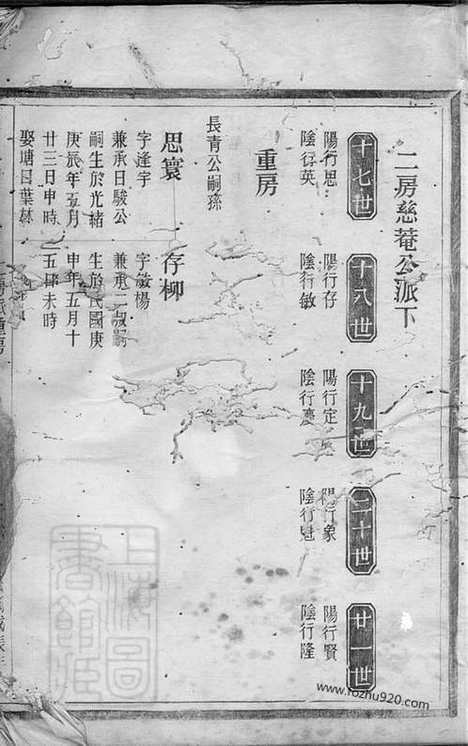 二房慈菴公派下
十七世
十八世
十九世
二十世
廿一世
陽行思
陰行英
陽行存
陰行敏
陽行定
陰行慶
陽行象
陰行魁
陽行賢
陰行隆
重房
長青公嗣孫
思寰
字逢宇
兼承日駿公
嗣生於光緒
庚辰年五月
廿三日申時
娶塘
葉林
存柳
字敏楊
兼承二叔嗣
生於民國庚
申年五月十
五日未時
上海圖
書館藏
www.fozhu920.com